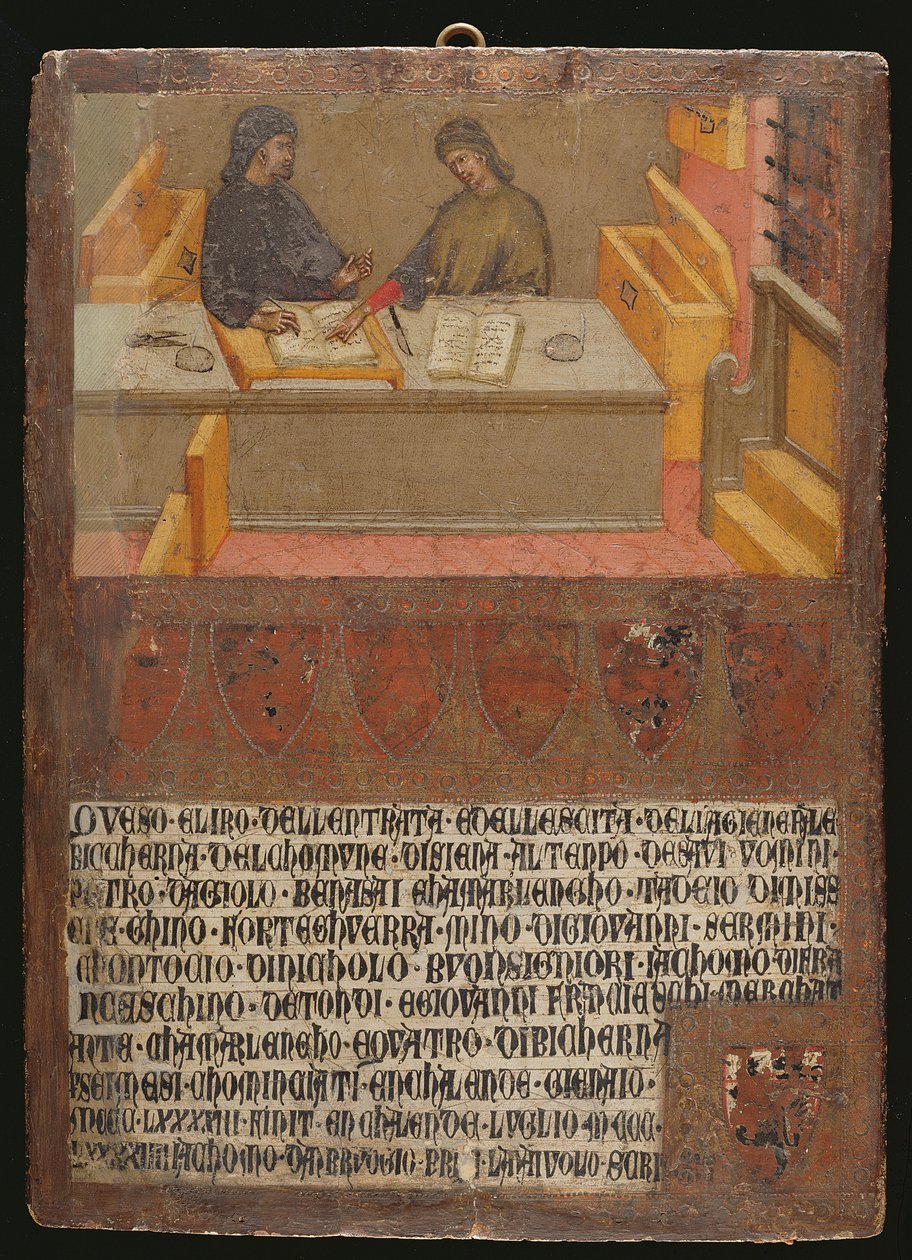 QVESO · ELIRO · DELLENTRATA · EDELLESCITA · DELIAGIENERALE
BICCHERNA · DELCHOMVNE · DISIENA · ALTENPO · DESAVI VOMINI ·
PIETRO · DAGIOLO · BENASAI CHAMARLENGHO · TADEIO DIMISS
GHINO · FORTEGHVERRA · MINO · DIGIOVANNI · SERMINI ·
CHONTOCIO · DINICHOLO · BVONSIGNIORI · IACHOMO · DIFRA
NCIESCHINO · DETONDI · EGIOVANNI FRANCIESCHI · MERCHAT
ANTE · CHAMARLENGHO · EQVATRO · DIBICHERNA
PSEIMESI · CHOMINCIATI · ENCHALENDE · GIENAIO ·
MCCC · LXXXXIII · FINIT · EN CHALENDE · LVGLIO · MCCC ·
LXXXXIIII IACHOMO · DANBRVOGIO · LATAVOLO · SCRI